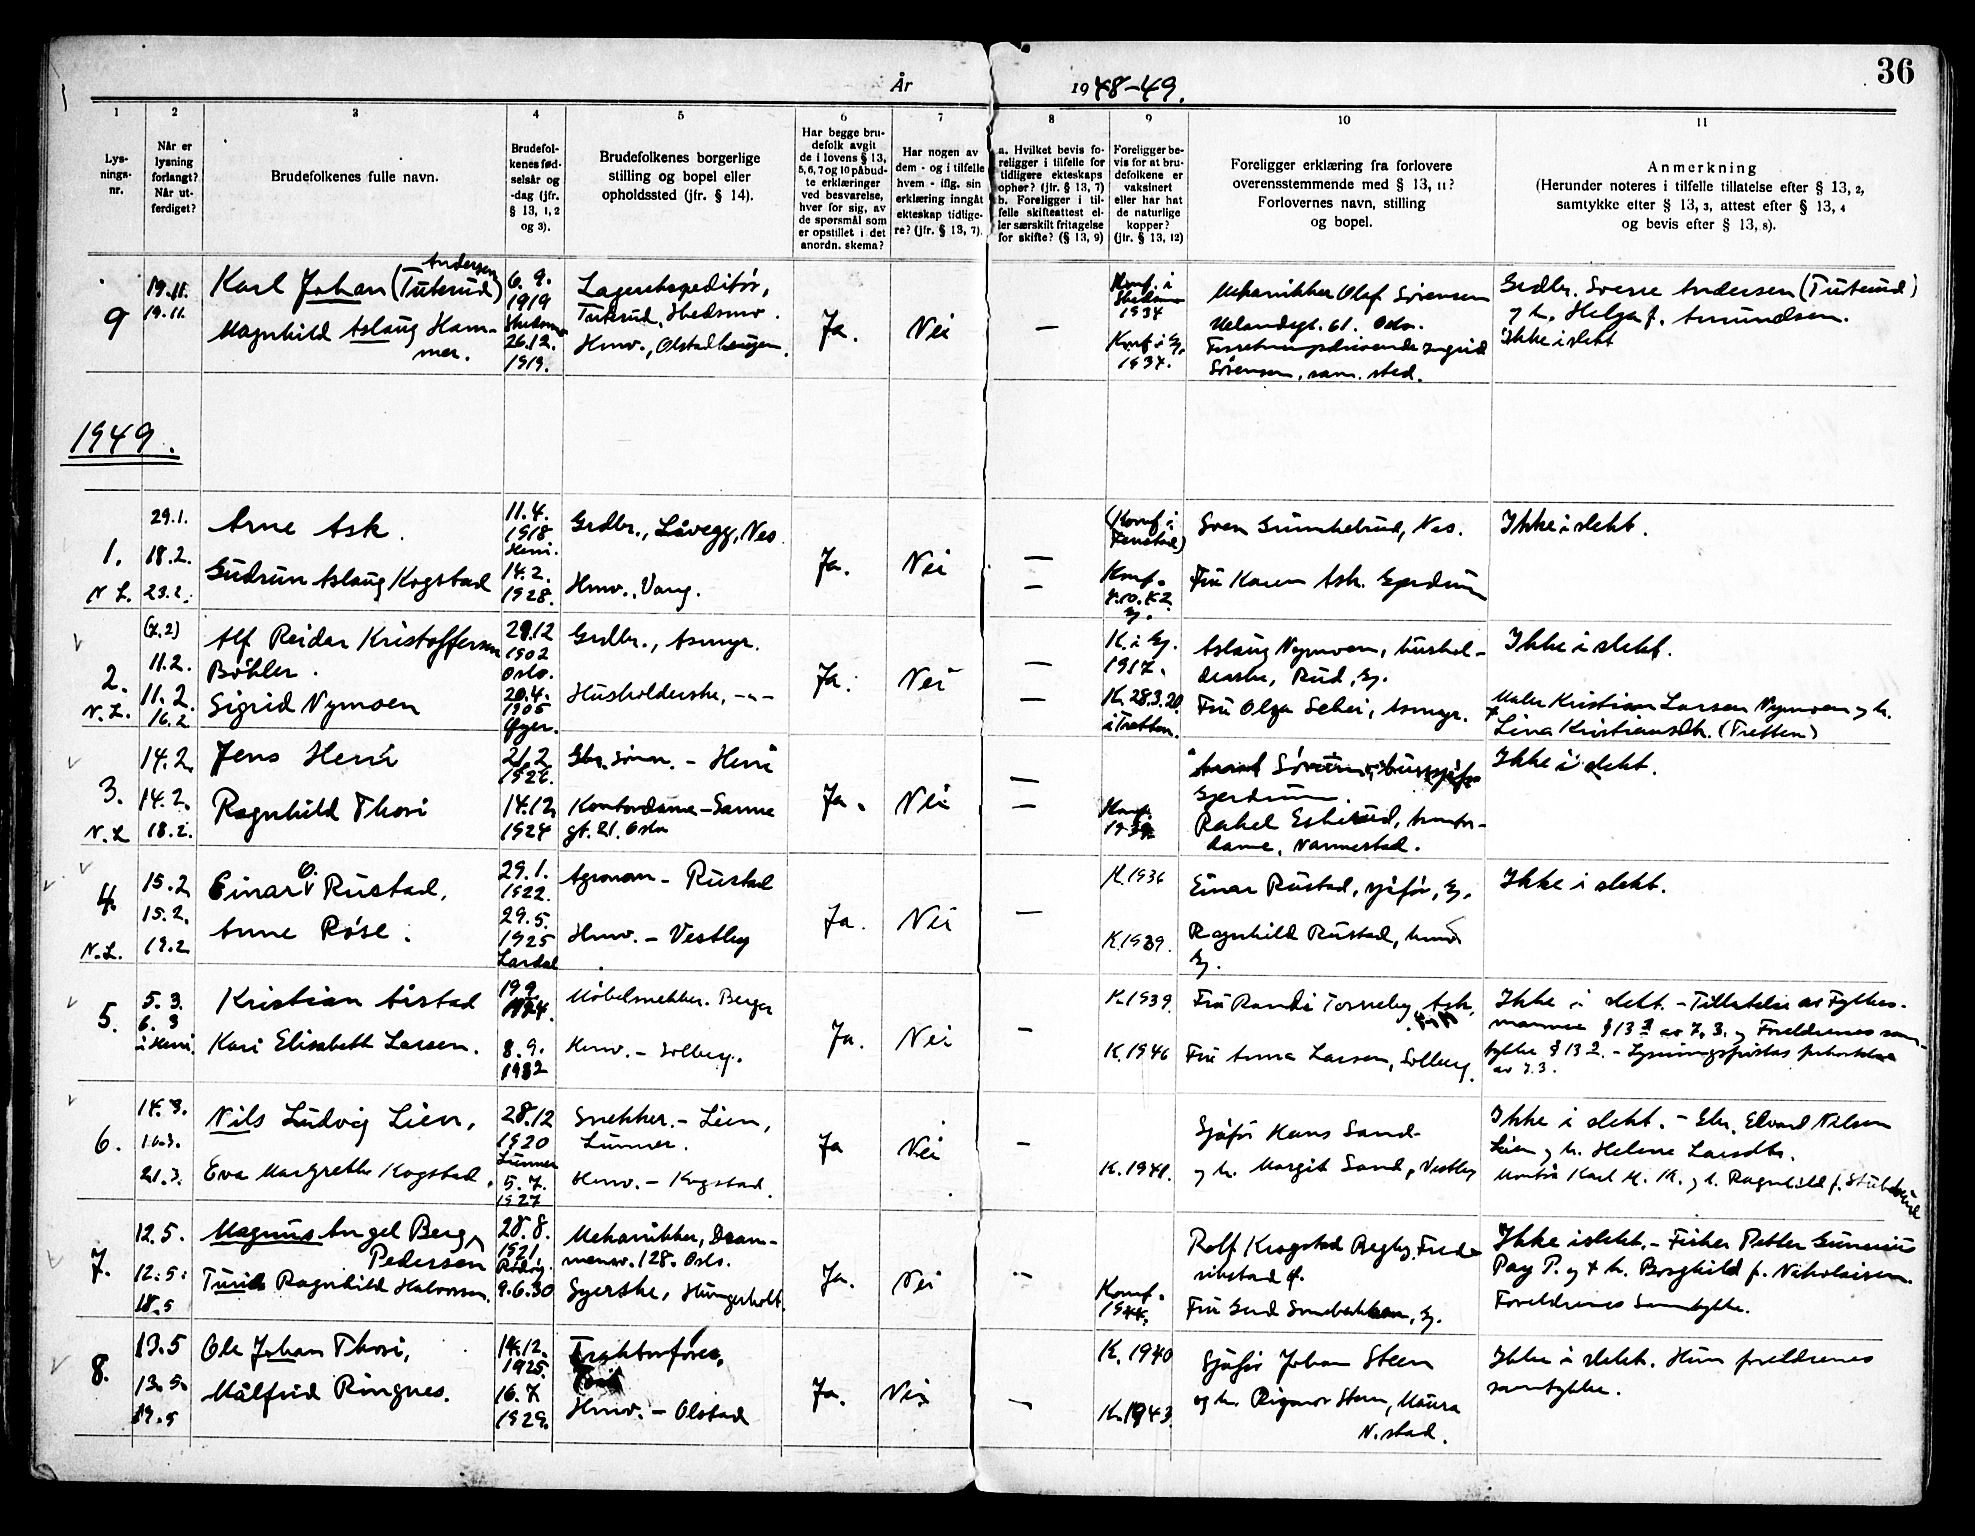 36
År 1948-49.
1 2 3 4 5 6 7 8 9 10 11
Lys-
nings-
nr.
Når er
lysning
forlangt?
Når ut-
ferdiget?
Brudefolkenes fulle navn.
Brudefol-
kenes fød-
selsår og
-dag (jfr.
§ 13, 1, 2
og 3).
Brudefolkenes borgerlige
stilling og bopel eller
opholdssted (jfr. § 14).
Har begge bru-
defolk avgit
de i lovens § 13,
5, 6, 7 og 10 påbud-
te erklæringer
ved besvarelse,
hver for sig, av
de spørsmål som
er opstillet i det
anordn. skema?
Har nogen av
dem - og i tilfelle
hvem - iflg. sin
erklæring inngåt
ekteskap tidlige-
re? (jfr. § 13, 7).
a. Hvilket bevis fo-
religger i tilfelle for
tidligere ekteskaps
ophør? (jfr. § 13, 7)
b. Foreligger i til-
felle skifteattest el-
ler særskilt fritagelse
for skifte? (§ 13, 9)
Foreligger be-
vis for at bru-
defolkene er
vaksinert
eller har hat
de naturlige
kopper?
(jfr. § 13, 12)
Foreligger erklæring fra forlovere
overensstemmende med § 13, 11?
Forlovernes navn, stilling
og bopel.
Anmerkning
(Herunder noteres i tilfelle tillatelse efter § 13, 2,
samtykke efter § 13, 3, attest efter § 13, 4
og bevis efter § 13, 8).
9
19.11.
19.11
Andersen
Karl Johan (Tuterud)
Magnhild Aslaug Ham-
mer.
6. 9.
1919
26.12.
1919.
Lagerekspeditør,
Tuterud, Skedsmo.
Hmv., Olstadhaugen.
Ja.
Nei
—
Konf. i
Skedsmo
1934
Konf. i Gj.
1934.
Mekaniker Olaf Sørensen
Uelandsgt. 61. Oslo.
Forretningsdrivende Ingrid
Sørensen, sam. sted.
Grdbr. Sverre Andersen (Tuterud)
og h. Helga f. Amundsen.
Ikke i slekt
1949.
1.
N. L.
29.1.
18.2.
23.2.
Arne Ask.
Gudrun Aslaug Kogstad
11.4.
1918
Heni.
14.2.
1928.
Grdbr., Låvegg, Nes
Hmv., Vang.
Ja.
Nei
—
—
(Konf. i
Fenstad)
Konf.
4.10.42
Gj.
Sven Grinkelrud, Nes.
Fru Karen Ask. Gjerdrum
Ikke i slekt.
2.
N. L.
(7.2)
11.2.
11.2.
16.2
Alf Reidar Kristoffersen
Bøhler.
Sigrid Nymoen
29.12
1902
Oslo.
20.4.
1905
Øyer.
Grdbr., Asmyr.
Husholderske, -"-
Ja.
Nei
—
—
K. i Gj.
1917.
K. 28.3.20
i Tretten.
Aslaug Nymoen, hushol-
derske, Rud, Gj.
Fru Olga Schei, Asmyr.
Ikke i slekt.
Maler Kristian Larsen Nymoen og h.
Lina Kristiansdtr. (Tretten)
3.
N. L
14.2.
14.2.
18.2.
Jens Heni
Ragnhild Thori
21.2
14.12
1924
Gbr. sønn. - Heni
Kontordame - Sanne
gt. 21. Oslo
Ja.
Nei
—
—
Konf.
Gjerdrum.
Rakel Eskerud, kontor-
dame, Nannestad.
Ikke i slekt.
4.
N. L.
15.2
15.2.
19.2
Einar O. Rustad,
Anne Røse.
29.1.
1922.
29.5.
1925
Lardal
Agronom - Rustad
Hmv. - Vestby
Ja.
Nei
—
K. 1936
K. 1939.
Einar Rustad, sjåfør, Gj.
Ragnhild Rustad, hmv
Gj.
Ikke i slekt.
5.
5. 3.
6. 3
i Heni.
Kristian Årstad
Kari Elisabeth Larsen.
19.9
1924.
8.9.
1932
Møbelsnekker. Berger
Hmv. - Solberg.
Ja.
Nei
—
K. 1939.
K. 1946
Fru Randi Torneby, Ask,
Fru Anna Larsen, Solberg.
Ikke i slekt. - Tillatelse av Fylkes-
mannen § 13 1 av 7. 3. og Foreldrenes sam-
tykke § 13 2. - Lysningsfristas forkortelse
av 7.3.
6.
14.3.
16.3.
21.3.
Nils Ludvig Lien,
Eva Margrethe Kogstad.
28.12
1920
Lunner
5.7.
1927
Snekker. - Lien,
Lunner.
Hmv. - Kogstad.
Ja
Nei
—
K. 1941.
Sjåfør Hans Sand
og h. Margit Sand, Vestby
Ikke i slekt. - Gbr. Edvard Nilsen
Lien og h. Helene Larsdtr.
Montør Karl M. K. og h. Ragnhild f. Stubberud
7.
12.5.
12.5.
18.5
Magnus Angel Berg
Pedersen
Turid Ragnhild Halvorsen.
28.8.
1921.
Rødøy.
9.6.30
Mekanikker, Dram-
mensv. 128. Oslo.
Syerske, Hungerholt.
Ja.
Nei
—
Konf.
1944.
Rolf Krogstad Begby, Frede
rikstad
Fru Gerd Snnebakken, Gj.
Ikke i slekt. - Fisker Petter Gunnius
Pay P. og h. Borghild f. Nikolaisen.
Foreldrenes samtykke.
8.
13.5
13.5.
19.5
Ole Johan Thori,
Målfrid Ringnes.
14.12.
1925.
16.7
1929.
Traktorfører,
Hmv. - Olstad
Ja.
Nei
—
K. 1940
K. 1943.
Sjåfør Johan Steen
og h. Rigmor Steen, Maura
N.stad.
Ikke i slekt. Hun foreldrenes
samtykke.